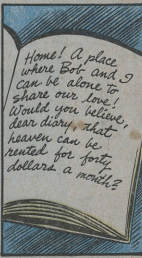 Home! A place
where Bob and I
can be alone to
share our love!
Would you believe,
dear diary, that
heaven can be
rented for forty
dollars a month?